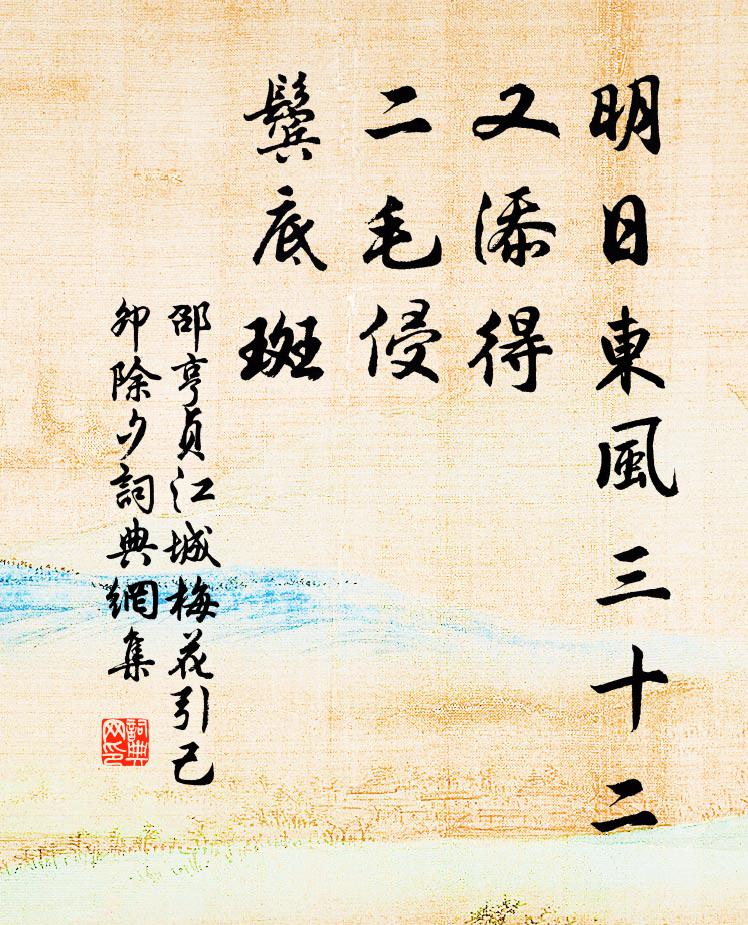 明日東風三十二
又添得
二毛侵
鬓底斑
邵亨貞江城梅花引己
卯除夕詞典網集
詞典網印